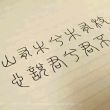 山有木兮木有枝
心說君兮君不